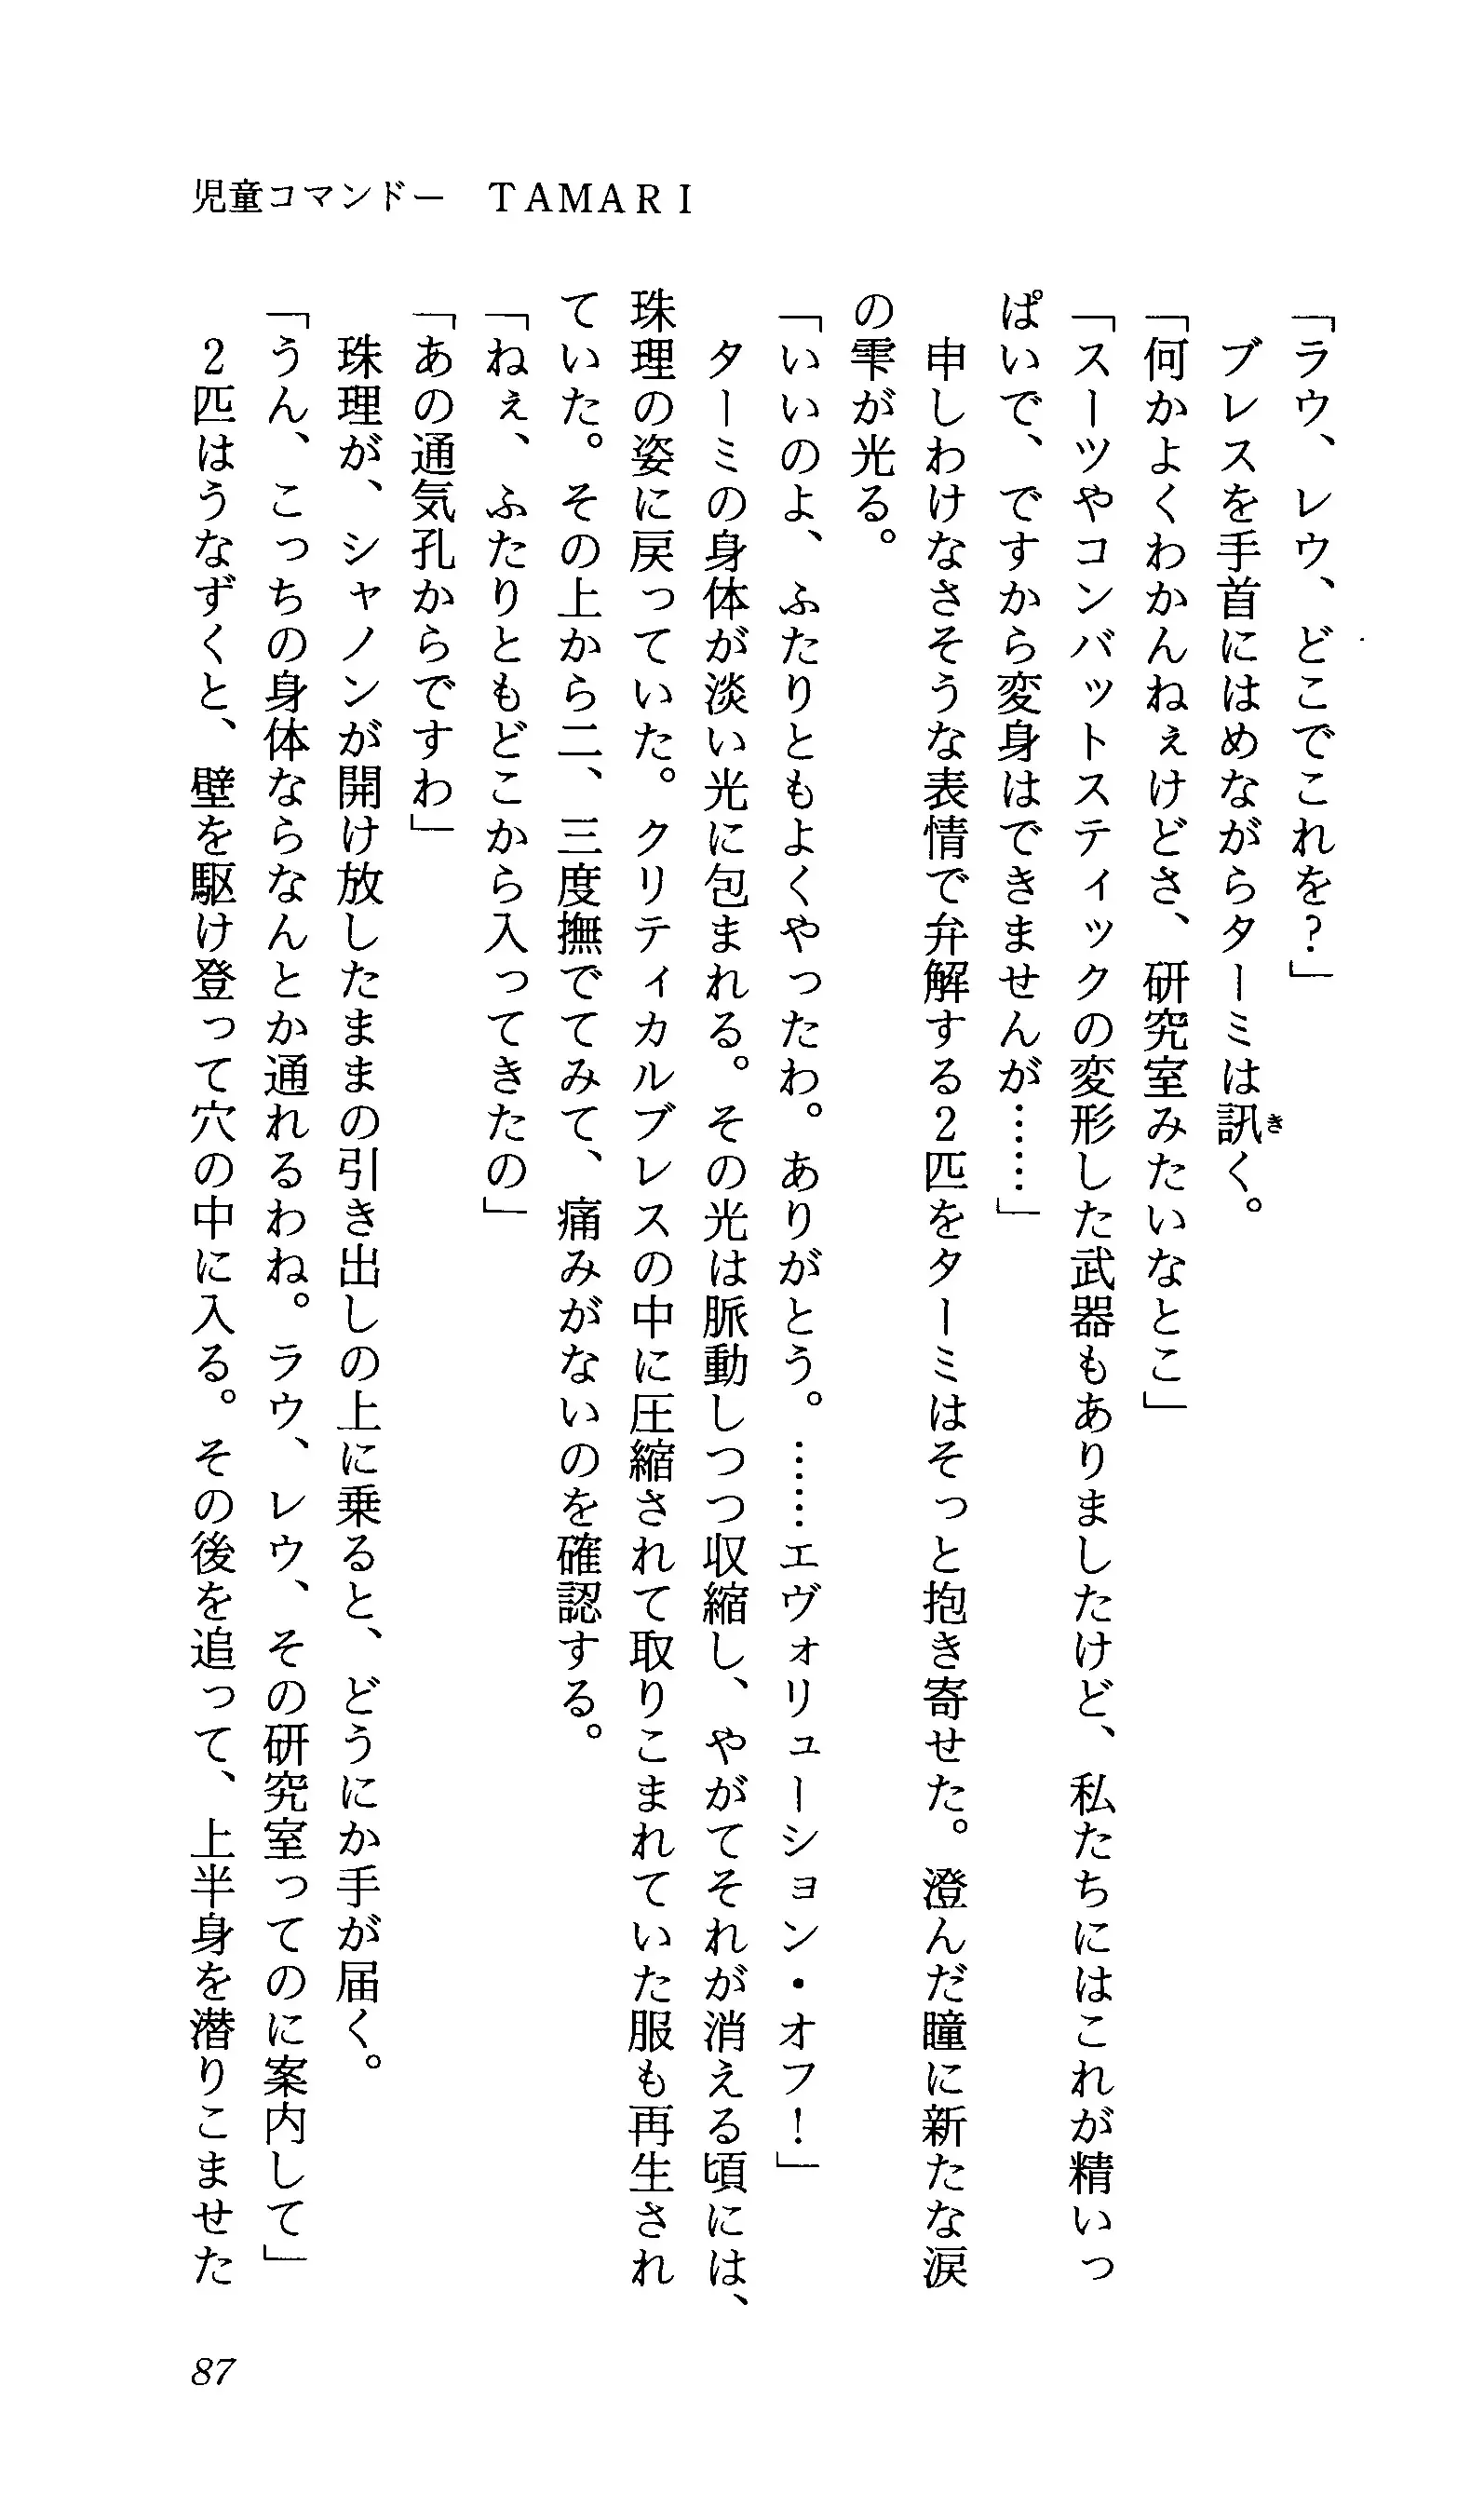 児童コマンドー　ＴＡＭＡＲＩ
「ラウ、レウ、どこでこれを？」
　ブレスを手首にはめながらターミは訊く。
「何かよくわかんねぇけどさ、研究室みたいなとこ」
「スーツやコンバットスティックの変形した武器もありましたけど、私たちにはこれが精いっ
ぱいで、ですから変身はできませんが……」
　申しわけなさそうな表情で弁解する２匹をターミはそっと抱き寄せた。澄んだ瞳に新たな涙
の雫が光る。
「いいのよ、ふたりともよくやったわ。ありがとう。……エヴォリューション・オフ！」
　ターミの身体が淡い光に包まれる。その光は脈動しつつ収縮し、やがてそれが消える頃には、
珠理の姿に戻っていた。クリティカルブレスの中に圧縮されて取りこまれていた服も再生され
ていた。その上から二、三度撫でてみて、痛みがないのを確認する。
「ねぇ、ふたりともどこから入ってきたの」
「あの通気孔からですわ」
　珠理が、シャノンが開け放したままの引き出しの上に乗ると、どうにか手が届く。
「うん、こっちの身体ならなんとか通れるわね。ラウ、レウ、その研究室ってのに案内して」
　２匹はうなずくと、壁を駆け登って穴の中に入る。その後を追って、上半身を潜りこませた
87